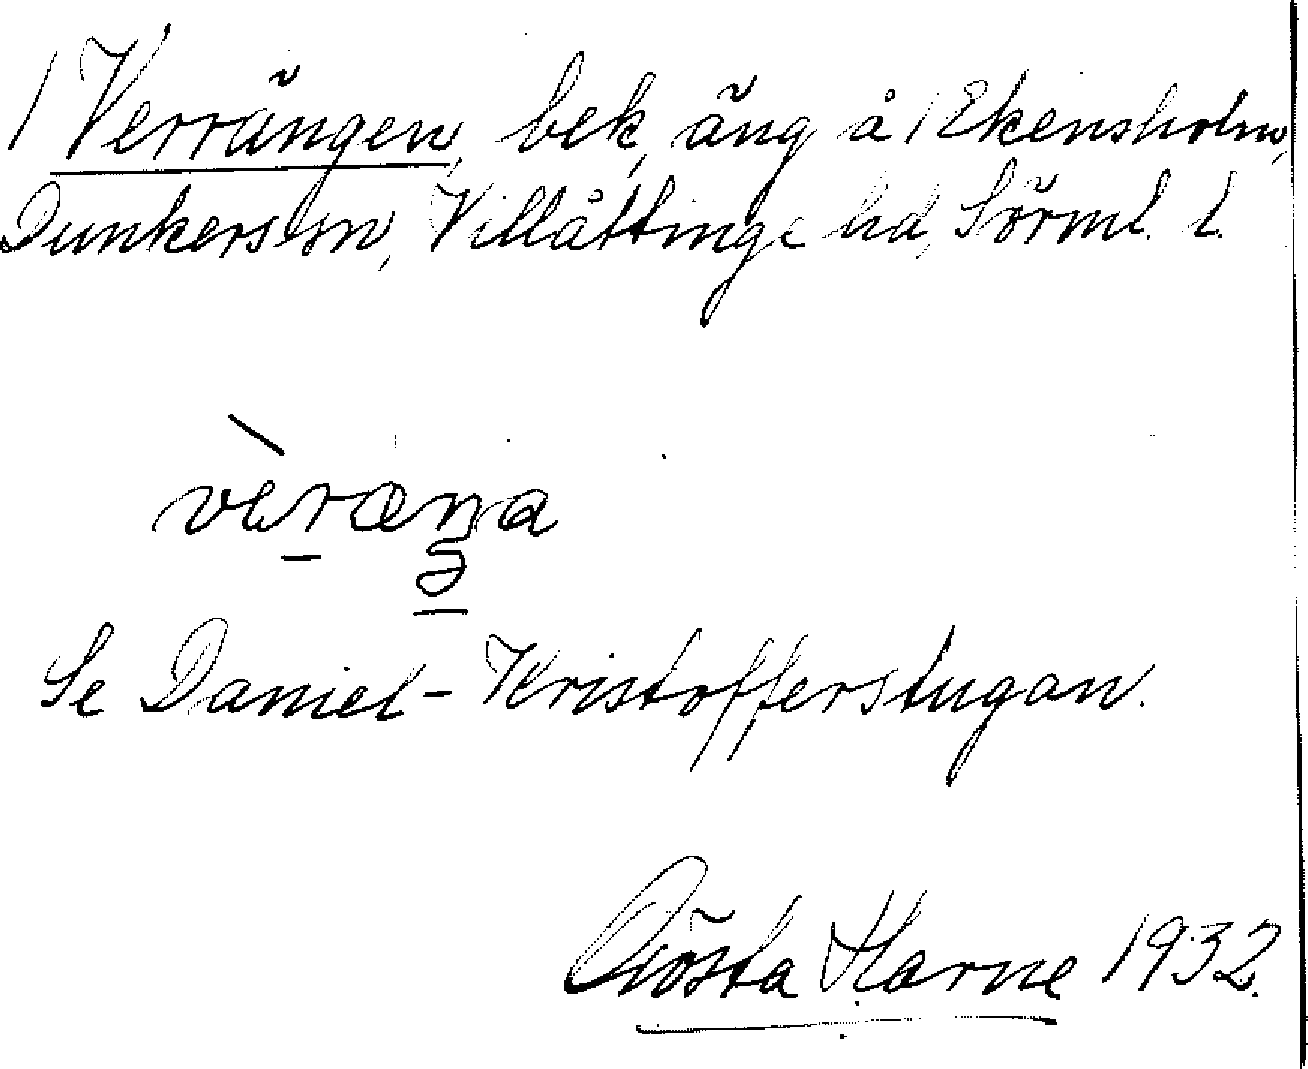 1 Verrängen, bek, äng å 1 Ekensholm,
Dunkers sn, Villåttinge hd, Sörml. l.
Se Daniel-Kristofferstugan.
Gösta Harne 1932.